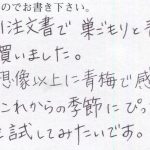 のでお書き下さい。
注文書で巣ごもりと青
買いました。
想像以上に青梅で感
これからの季節にぴっ
を試してみたいです。